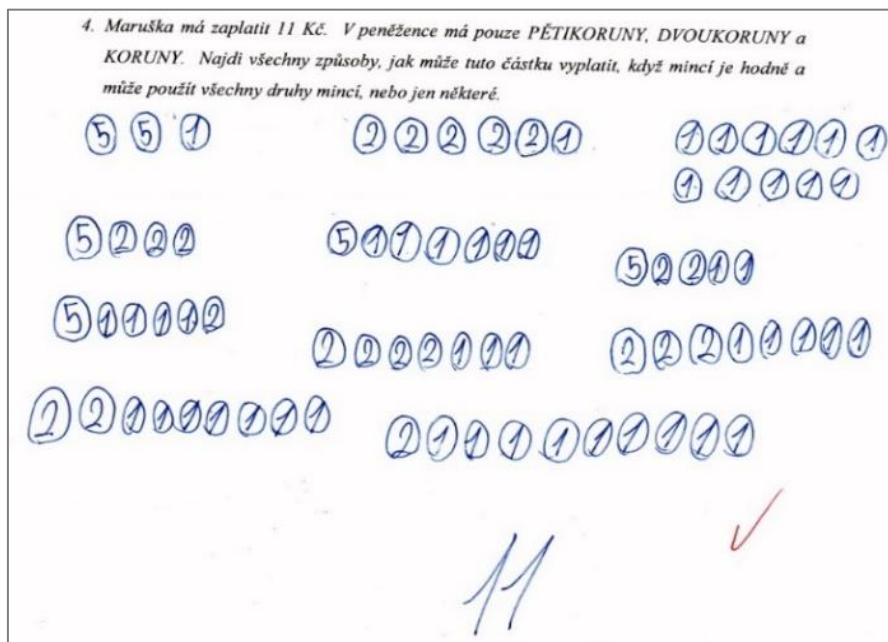 4. Maruška má zaplatit 11 Kč. V peněžence má pouze PĚTIKORUNY, DVOUKORUNY a
KORUNY. Najdi všechny způsoby, jak může tuto částku vyplatit, když mincí je hodně a
může použít všechny druhy mincí, nebo jen některé.
5 5 1 2 2 2 2 2 1 1 1 1 1 1 1
1 1 1 1 1
5 2 2 2 5 1 1 1 1 1 1 5 2 2 1 1
5 1 1 1 1 2 2 2 2 2 1 1 1 2 2 2 1 1 1 1 1
2 2 1 1 1 1 1 1 1 2 1 1 1 1 1 1 1 1 1
11